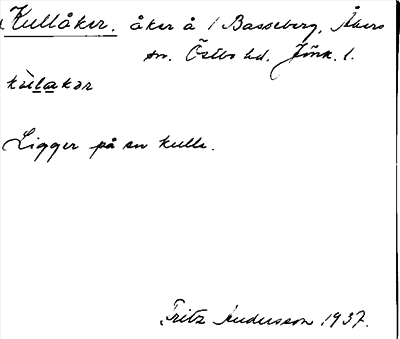 Kullåker. åker å 1 Basseberg, Åkers
sn. Östbo hd. Jönk. l.
kùlakər
Ligger på en kulle.
Fritz Andersson 1937.